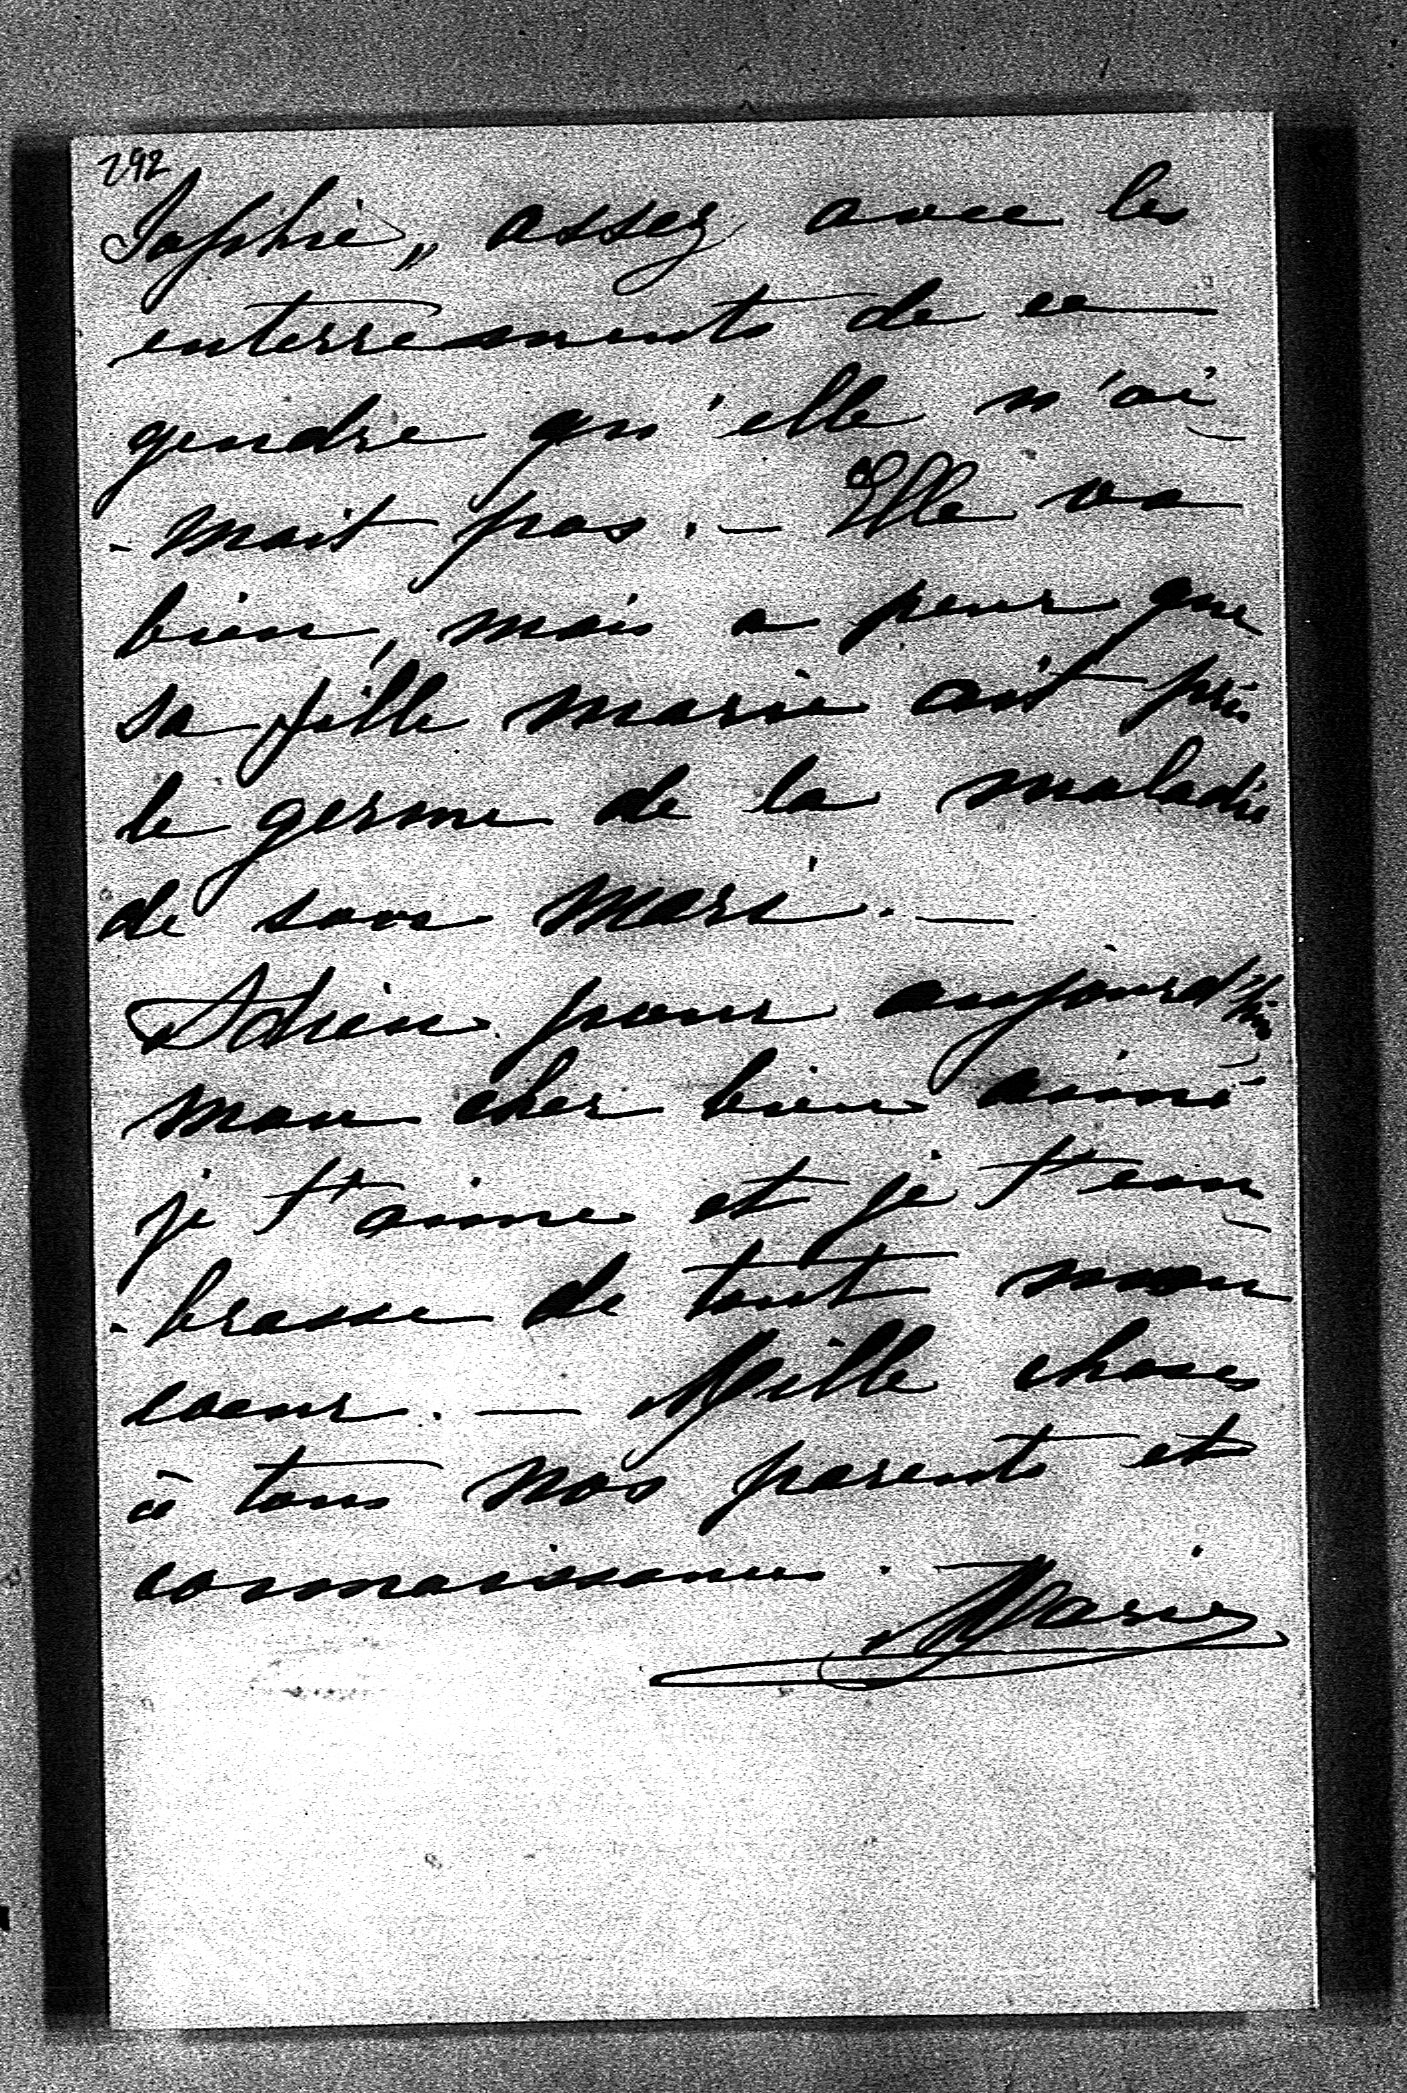 292
Sophie, „ assez avec les
enterrements de ce
gendre qu'elle n'ai-
-mait pas. — Elle va
bien, mais a peur que
sa fille Marie ait pris
le germe de la maladie
de son mari. —
Adieu pour aujourd'hui
mon cher bien aimé
je t'aime et je t'em-
-brasse de tout mon
coeur. — Mille choses
à tous nos parents et
connaissances. —
Marie